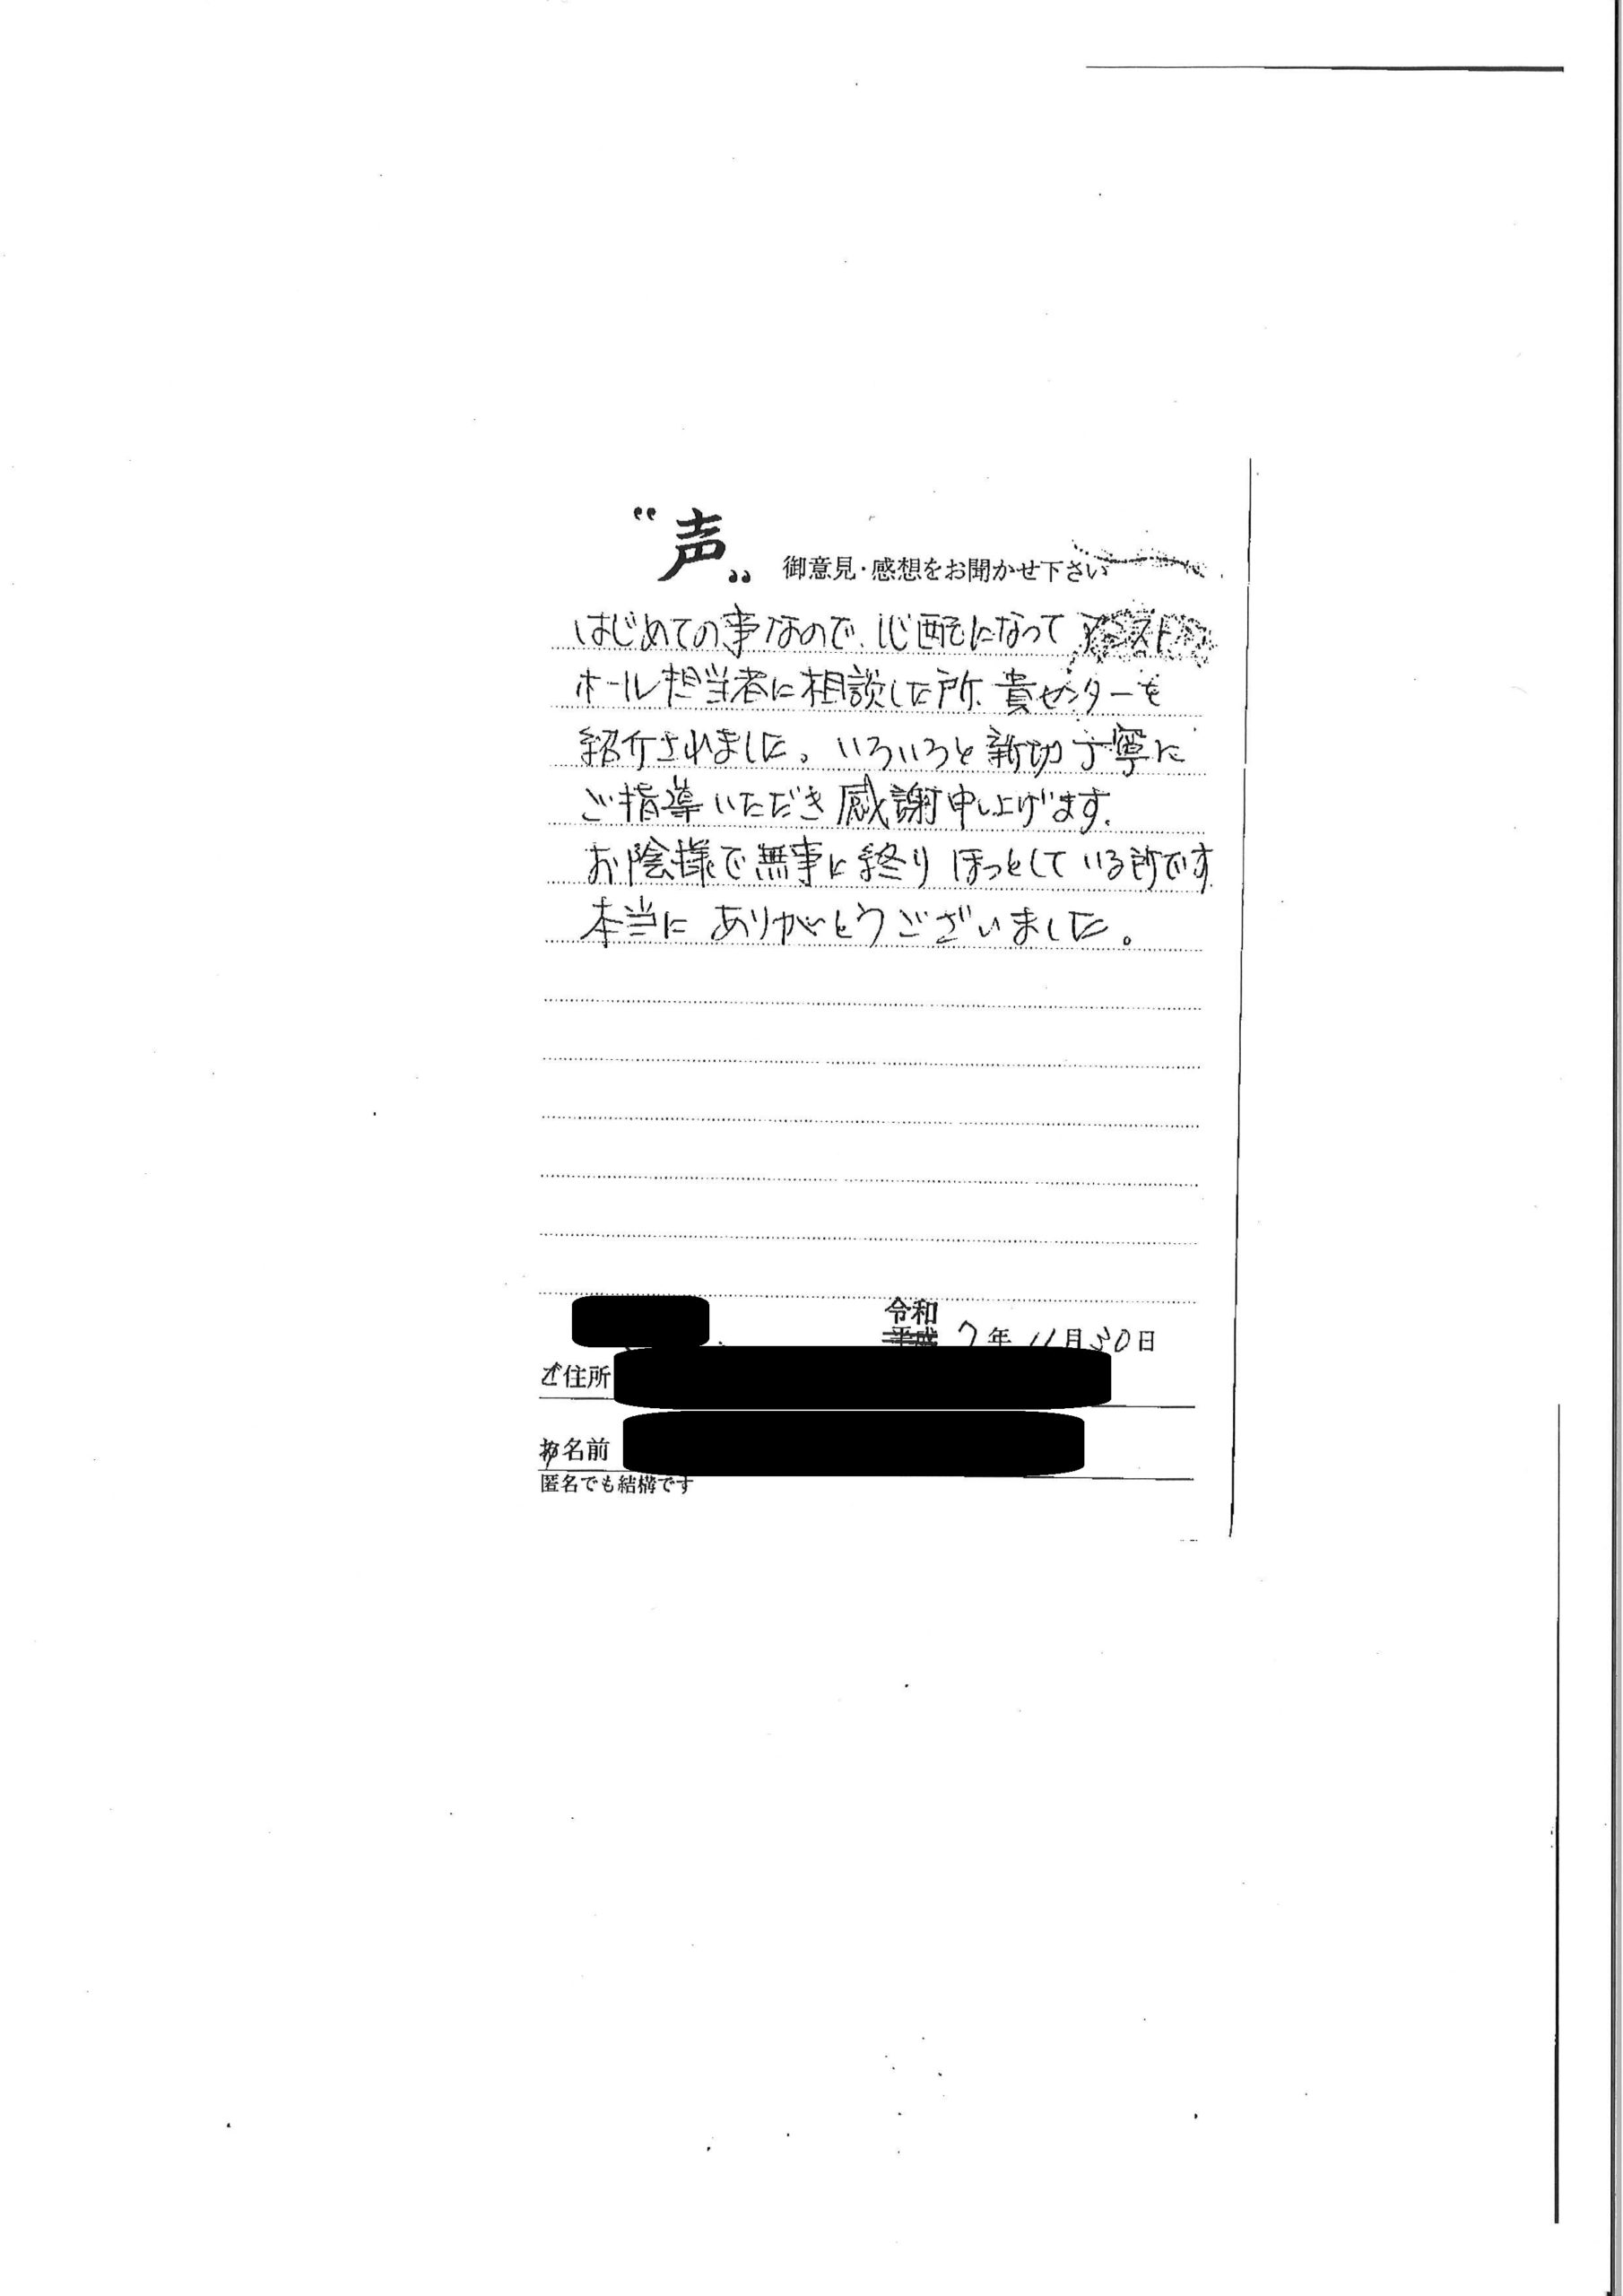 “声„ 御意見・感想をお聞かせ下さい
はじめての事なので、心配になって
ホール担当者に相談した所、貴センターを
紹介されました。いろいろと新切丁寧に
ご指導いただき感謝申し上げます。
お陰様で無事に終り ほっとしている所です
本当に ありがとうございました。
令和
平成 7年 11月30日
ご住所
お名前
匿名でも結構です